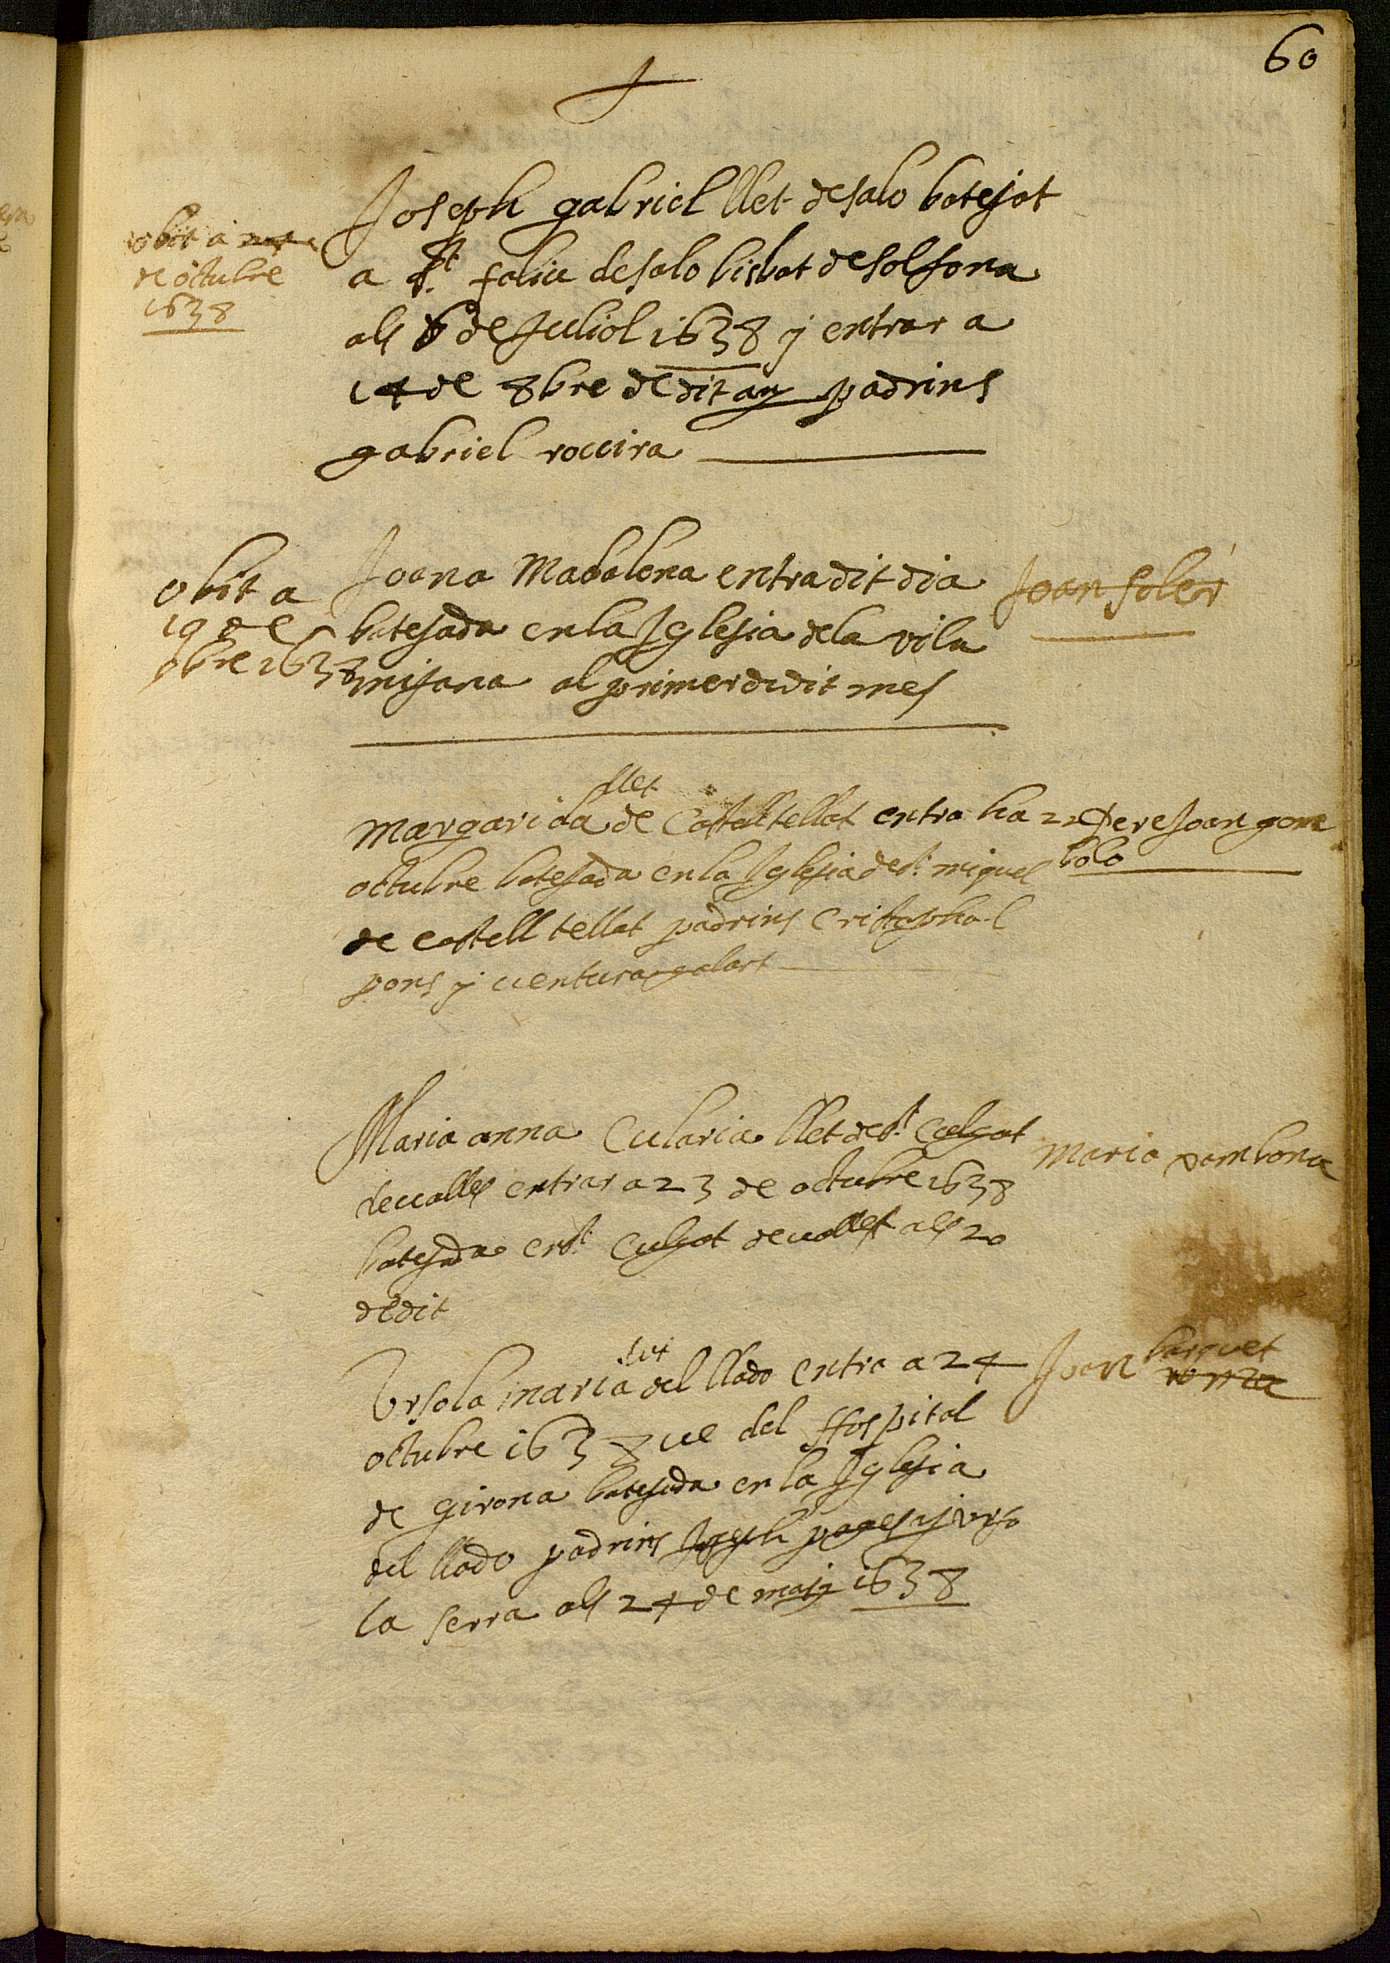 60
Joseph gabriel llet de salo batejat
a St. faliu de salo bisbat de solsona
als 6 de Juliol 1638 y entrar a
14 de 8bre de dit any padrins
gabriel roviira
obit a
de octubre
1638
Joana Madalena entra dit dia
batejada en la Iglesia de la vila
mijana al primer de dit mes
obit a
19 de
1638
Joan soler
llet
Margarida de Castelltellat entra ha 22
octubre batejada en la Iglesia de st. miquel
de castell tellat padrins Cristophol
pons y ventura galart
Pere Joan gom
bolo
Maria anna Eularia llet de st. Culgat
de valles entrar a 23 de octubre 1638
batejada en st. Culgat de valles als 20
de dit
Maria pamlona
llet
Ursola maria del llado entra a 24
octubre 1638 ve del Hospital
de girona batejada en la Iglesia
del llado padrins Joseph pages y urso
la serra als 24 de maig 1638
Joan barquet